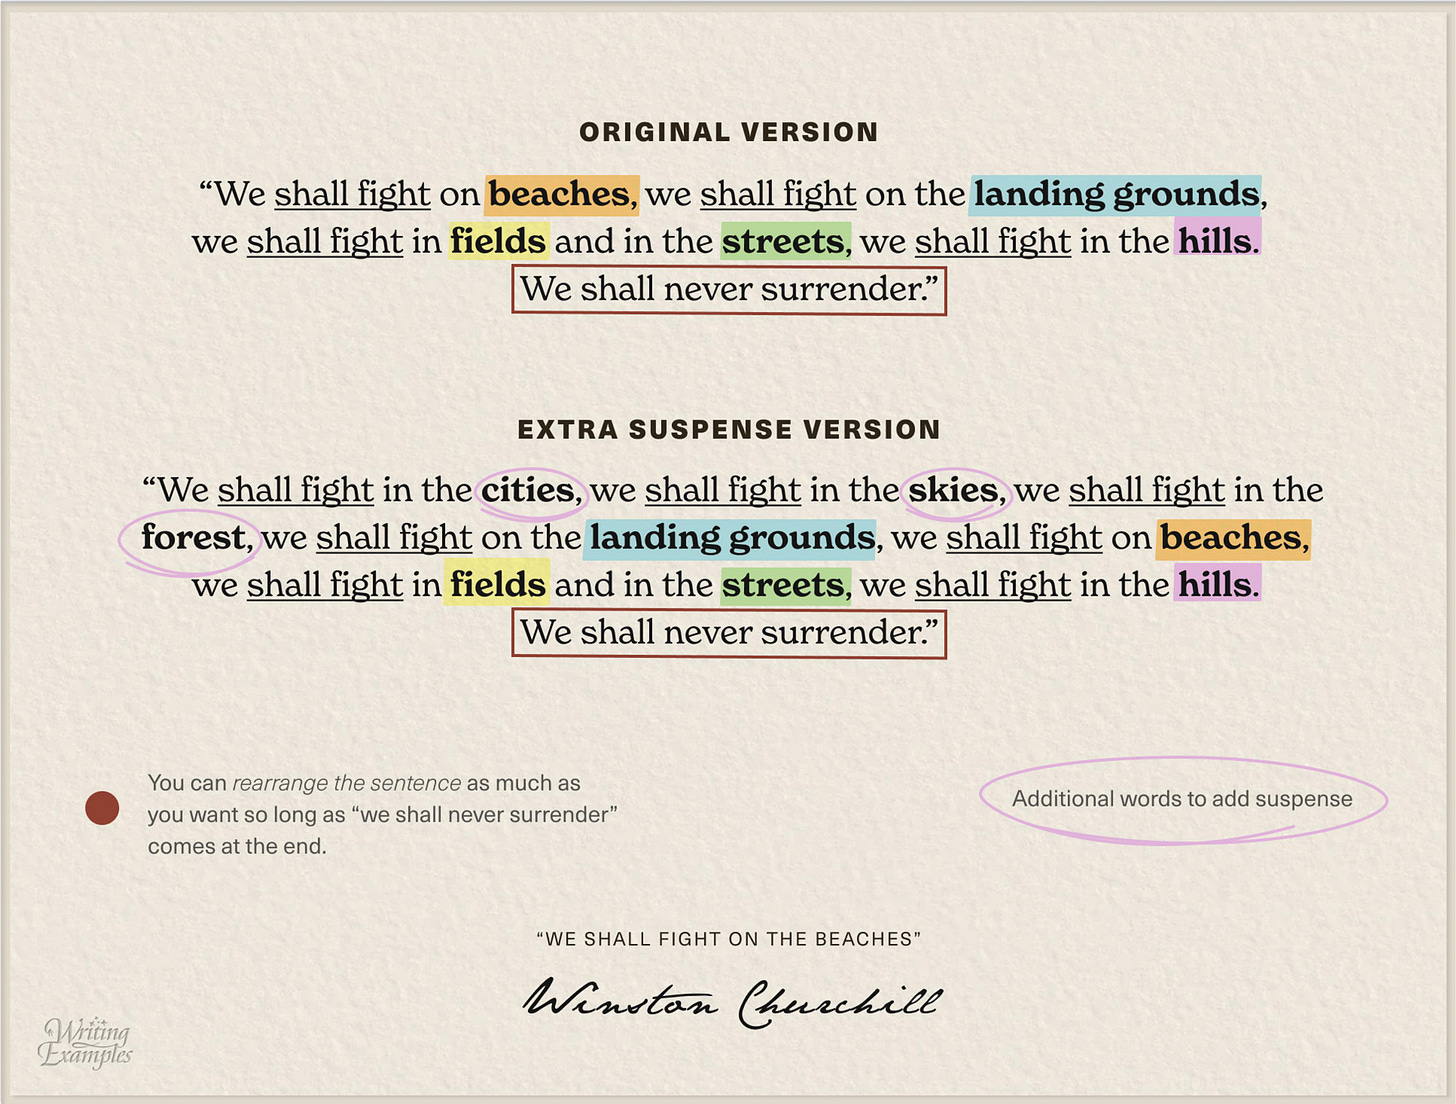 ORIGINAL VERSION
“We shall fight on beaches, we shall fight on the landing grounds,
we shall fight in fields and in the streets, we shall fight in the hills.
We shall never surrender.”
EXTRA SUSPENSE VERSION
“We shall fight in the cities, we shall fight in the skies, we shall fight in the
forest, we shall fight on the landing grounds, we shall fight on beaches,
we shall fight in fields and in the streets, we shall fight in the hills.
We shall never surrender.”
You can rearrange the sentence as much as
you want so long as “we shall never surrender”
comes at the end.
Additional words to add suspense
“WE SHALL FIGHT ON THE BEACHES”
Winston Churchill
Writing
Examples